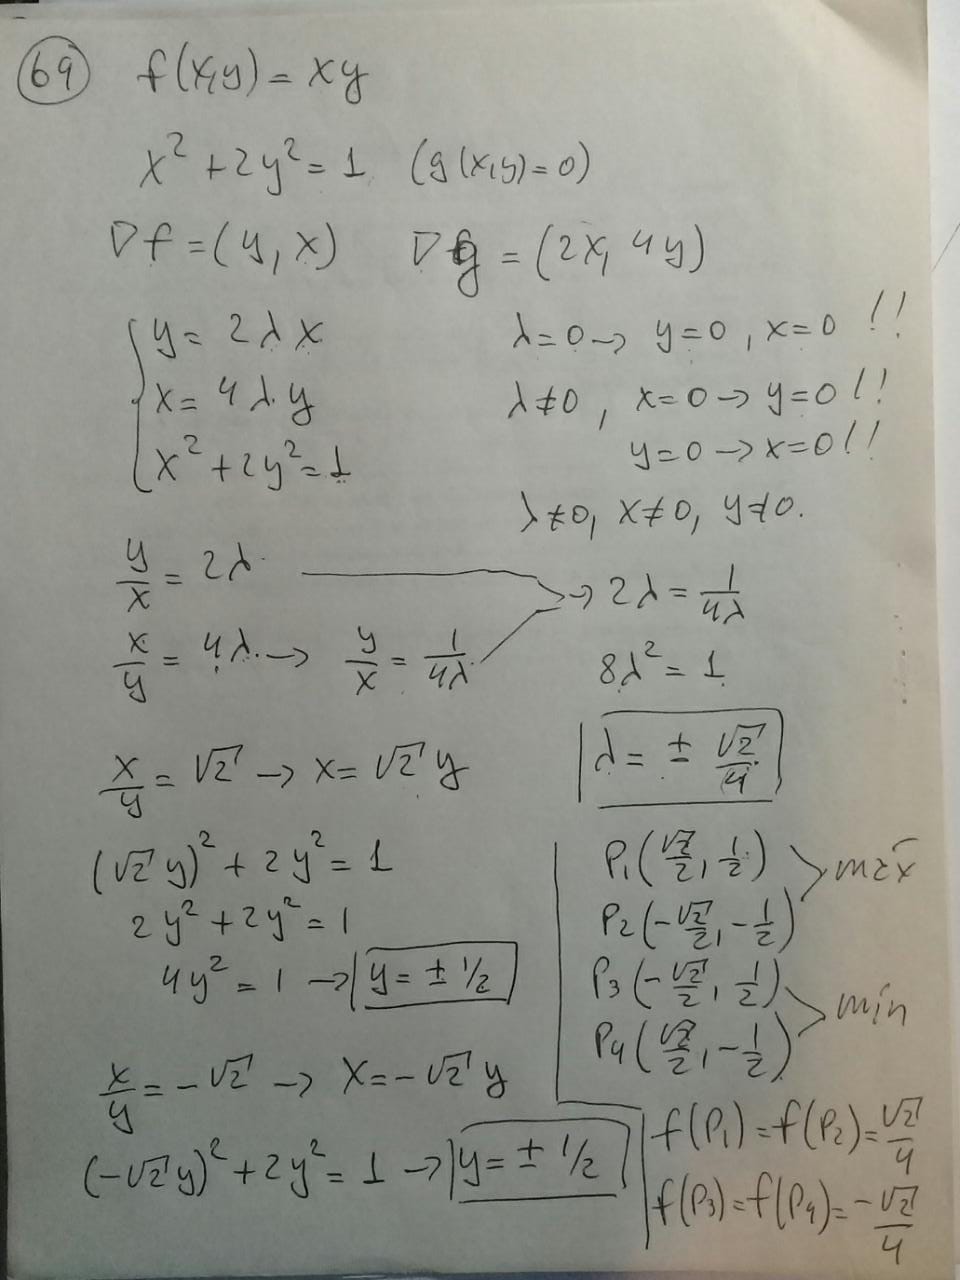 69 f(x,y) = xy
x² + 2y² = 1 (g(x,y) = 0)
∇f = (y, x) ∇g = (2x, 4y)
y = 2λx
x = 4λy
x² + 2y² = 1
λ = 0 → y = 0, x = 0 !!
λ ≠ 0, x = 0 → y = 0 !!
y = 0 → x = 0 !!
λ ≠ 0, x ≠ 0, y ≠ 0.
y/x = 2λ
x/y = 4λ → y/x = 1/4λ
→ 2λ = 1/4λ
8λ² = 1
λ = ± √2/4
x/y = √2 → x = √2 y
(√2 y)² + 2y² = 1
2y² + 2y² = 1
4y² = 1 → y = ± 1/2
x/y = -√2 → x = -√2 y
(-√2 y)² + 2y² = 1 → y = ± 1/2
P1(√2/2, 1/2)
P2(-√2/2, -1/2)
máx
P3(-√2/2, 1/2)
P4(√2/2, -1/2)
mín
f(P1) = f(P2) = √2/4
f(P3) = f(P4) = -√2/4